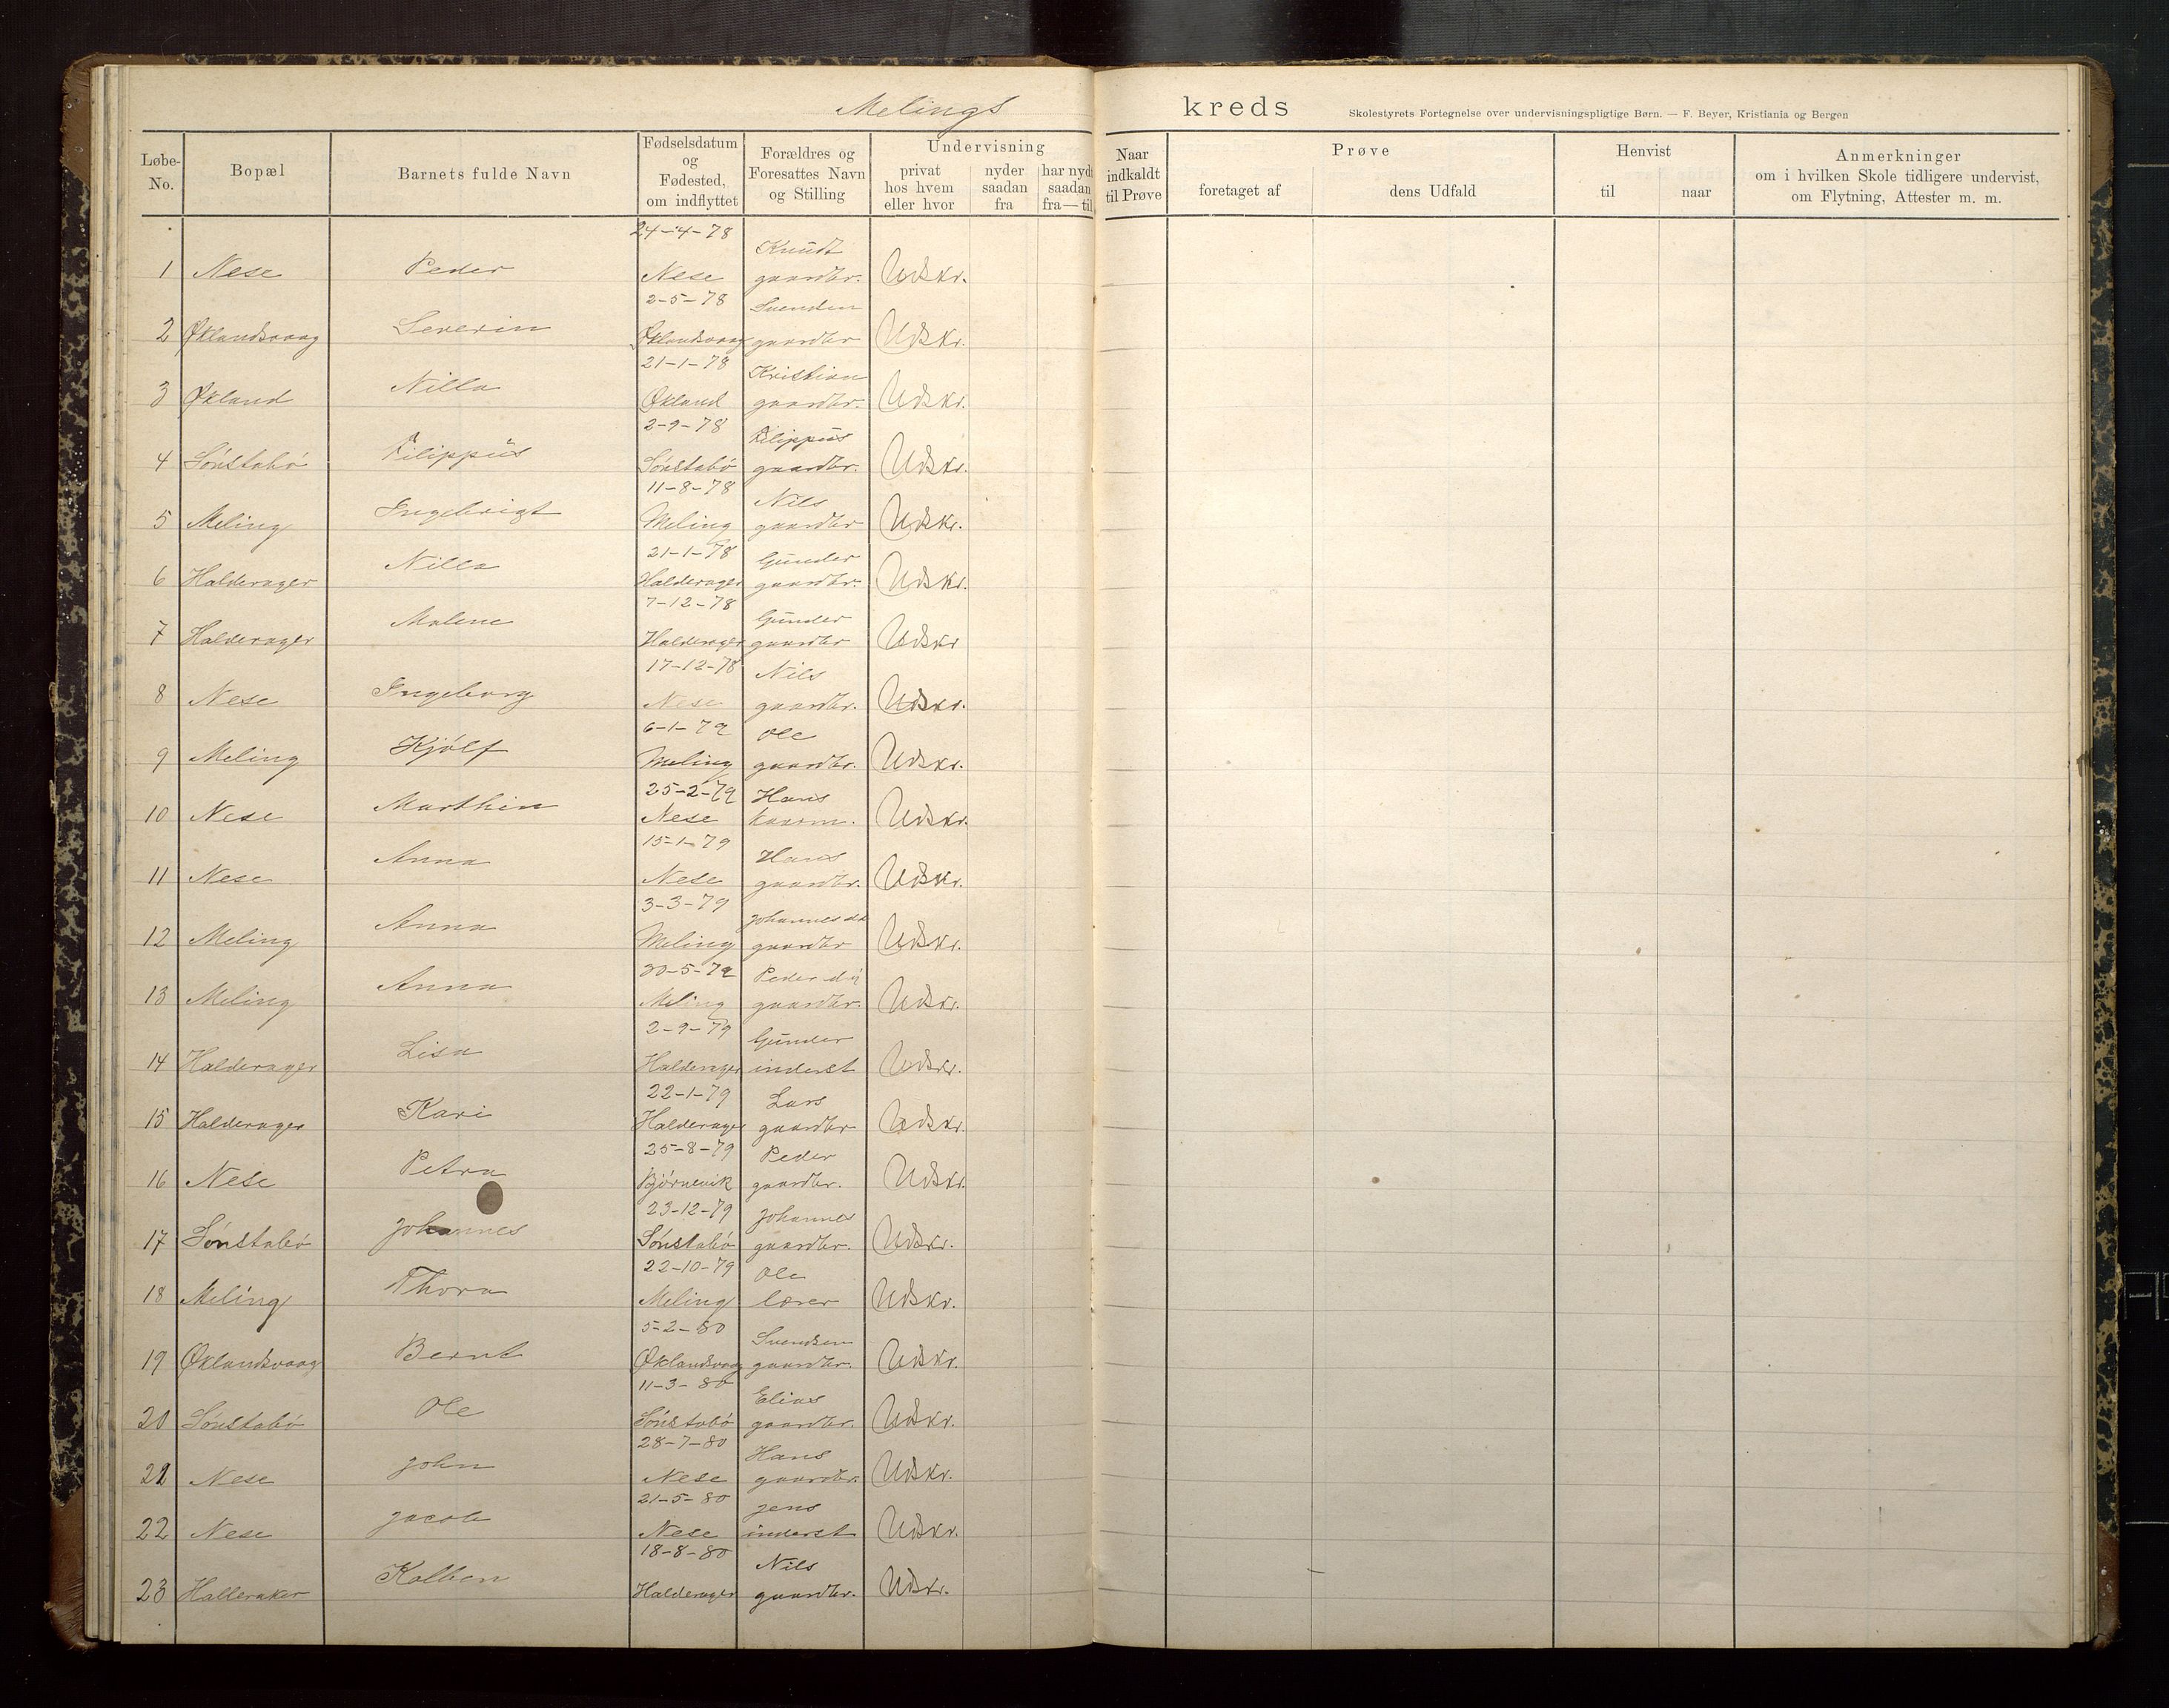 Melings kreds
Skolestyrets Fortegnelse over undervisningspligtige Børn. — F. Beyer, Kristiania og Bergen
Løbe-No. Bopæl Barnets fulde Navn Fødselsdatum og Fødested, om indflyttet Forældres og Foresattes Navn og Stilling Undervisning privat hos hvem eller hvor nyder saadan fra har nydt saadan fra—til Naar indkaldt til Prøve Prøve foretaget af dens Udfald Henvist til naar Anmerkninger om i hvilken Skole tidligere undervist, om Flytning, Attester m. m.
1 Nese Peder 24-4-78 Nese Knudt gaardbr. Udskr.
2 Øklandsvaag Severin 2-5-78 Øklandsvaag Svendsen gaardbr Udskr.
3 Økland Nilla 21-1-78 Økland Kristian gaardbr. Udskr.
4 Sónstabó Filippus 2-9-78 Sónstabó Filippus gaardbr. Udskr.
5 Meling Ingebrigt 11-8-78 Meling Nils gaardbr Udskr.
6 Halderager Nilla 21-1-78 Halderager Gunder gaardbr. Udskr.
7 Halderager Malene 7-12-78 Halderager Gunder gaardbr Udskr
8 Nese Ingeborg 17-12-78 Nese Nils gaardbr. Udskr.
9 Meling Kjólf 6-1-79 Meling Ole gaardbr. Udskr.
10 Nese Marthin 25-2-79 Nese Hans Udskr.
11 Nese Anna 15-1-79 Nese Hans gaardbr. Udskr.
12 Meling Anna 3-3-79 Meling Johannes gaardbr Udskr.
13 Meling Anna 30-5-79 Meling Peder gaardbr. Udskr.
14 Halderager Lisa 2-9-79 Halderager Gunder inderst Udskr.
15 Halderager Kari 22-1-79 Halderager Lars gaardbr Udskr.
16 Nese Petra 25-8-79 Bjórnevik Peder gaardbr. Udskr.
17 Sónstabó Johannes 23-12-79 Sónstabó Johannes gaardbr. Udskr.
18 Meling Thora 22-10-79 Meling Ole lærer Udskr.
19 Øklandsvaag Bernt 5-2-80 Øklandsvaag Svendsen gaardbr. Udskr.
20 Sónstabó Ole 11-3-80 Sónstabó Elias gaardbr. Udskr.
21 Nese John 28-7-80 Nese Hans gaardbr. Udskr.
22 Nese Jacob 21-5-80 Nese Jens inderst Udskr.
23 Halleraker Kolben 18-8-80 Halderager Nils gaardbr. Udskr.